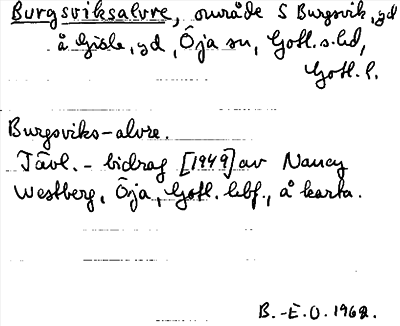 Burgsviksalvre, område S Burgsvik, gd
å Gisle, gd, Öja sn, Gotl. s. hd,
Gotl. l.
Burgsviks-alvre.
Tävl. - bidrag [1949] av Nancy
Westberg, Öja, Gotl. hbf., å karta.
B.-E.O. 1962.